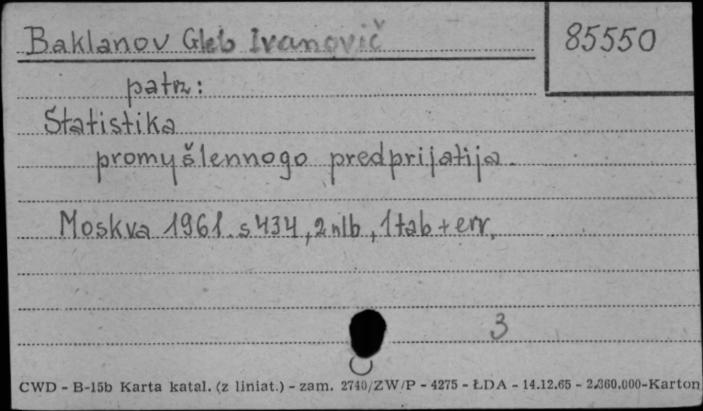 Baklanov Gleb Ivanovič
85550
patrz:
Statistika
promyšlennogo predprijatija.
Moskva 1961. s 434, 2 nlb, 1 tab + err.
3
CWD - B-15b Karta katal. (z liniat.) - zam. 2740/ZW/P - 4275 - ŁDA - 14.12.65 - 2.360.000-Karton